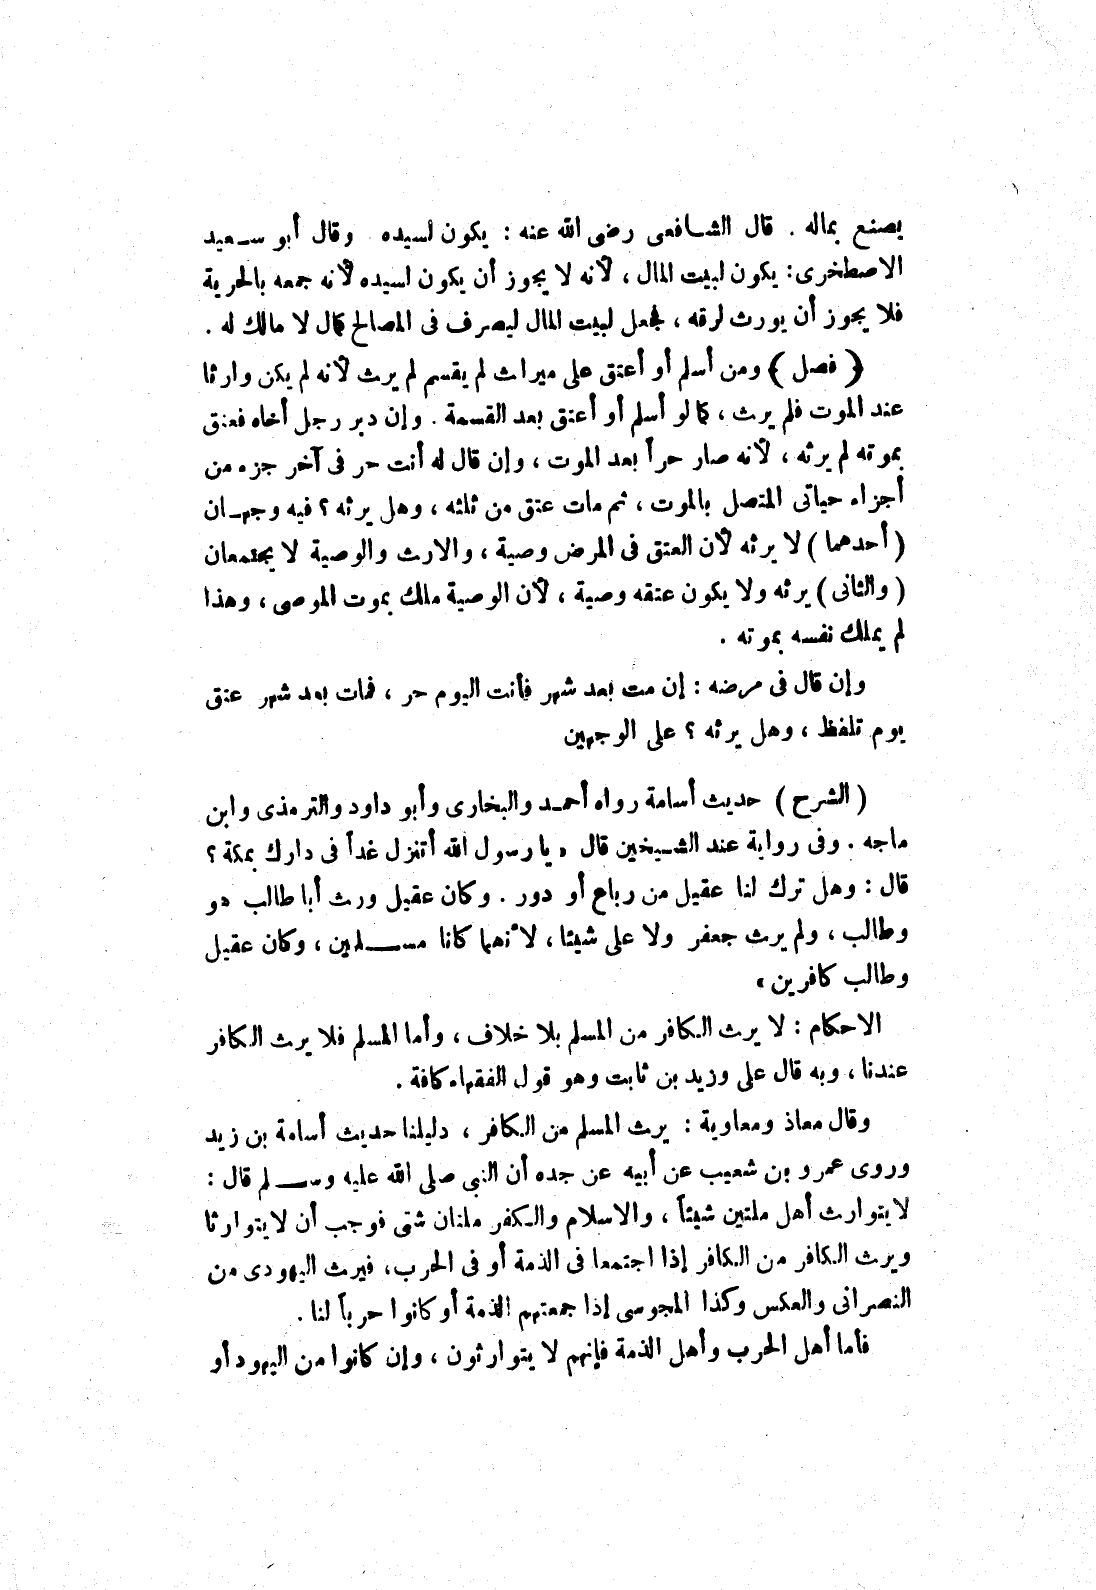 يصنع بماله . قال الشافعى رضى الله عنه : يكون لسيده وقال أبو سعيد
الاصطخرى: يكون لبيت المال ، لأنه لا يجوز أن يكون لسيده لأنه جمعه بالحرية
فلا يجوز أن يورث لرقه ، فجعل لبيت المال ليصرف فى المصالح كمال لا مالك له .
( فصل ) ومن أسلم أو أعتق على ميراث لم يقسم لم يرث لأنه لم يكن وارثا
عند الموت فلم يرث ، كما لو أسلم أو أعتق بعد القسمة . وإن دبر رجل أخاه فعتق
بموته لم يرثه ، لأنه صار حراً بعد الموت ، وإن قال له أنت حر فى آخر جزء من
أجزاء حياتى المتصل بالموت ، ثم مات عتق من ثلثه ، وهل يرثه ؟ فيه وجهان
( أحدهما ) لا يرثه لأن العتق فى المرض وصية ، والارث والوصية لا يجتمعان
( والثانى ) يرثه ولا يكون عتقه وصية ، لأن الوصية ملك بموت الموصى ، وهذا
لم يملك نفسه بموته .
وإن قال فى مرضه : إن مت بعد شهر فأنت اليوم حر ، فمات بعد شهر عتق
يوم تلفظ ، وهل يرثه ؟ على الوجهين
( الشرح ) حديث أسامة رواه أحمد والبخارى وأبو داود والترمذى وابن
ماجه . وفى رواية عند الشيخين قال « يا رسول الله أتنزل غداً فى دارك بمكة ؟
قال : وهل ترك لنا عقيل من رباع أو دور . وكان عقيل ورث أبا طالب هو
وطالب ، ولم يرث جعفر ولا على شيئا ، لأنهما كانا مسلمين ، وكان عقيل
وطالب كافرين »
الاحكام : لا يرث الكافر من المسلم بلا خلاف ، وأما المسلم فلا يرث الكافر
عندنا ، وبه قال على وزيد بن ثابت وهو قول الفقهاء كافة .
وقال معاذ ومعاوية : يرث المسلم من الكافر ، دليلنا حديث أسامة بن زيد
وروى عمرو بن شعيب عن أبيه عن جده أن النبى صلى الله عليه وسلم قال :
لا يتوارث أهل ملتين شيئاً ، والاسلام والكفر ملتان شتى فوجب أن لا يتوارثا
ويرث الكافر من الكافر إذا اجتمعا فى الذمة أو فى الحرب، فيرث اليهودى من
النصرانى والعكس وكذا المجوسى إذا جمعتهم الذمة أو كانوا حرباً لنا .
فأما أهل الحرب وأهل الذمة فإنهم لا يتوارثون ، وإن كانوا من اليهود أو